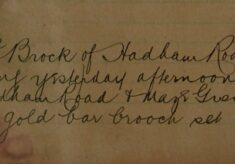 Brock of Hadham Roa
yesterday afternoon
ham Road & May's
gold bar brooch set